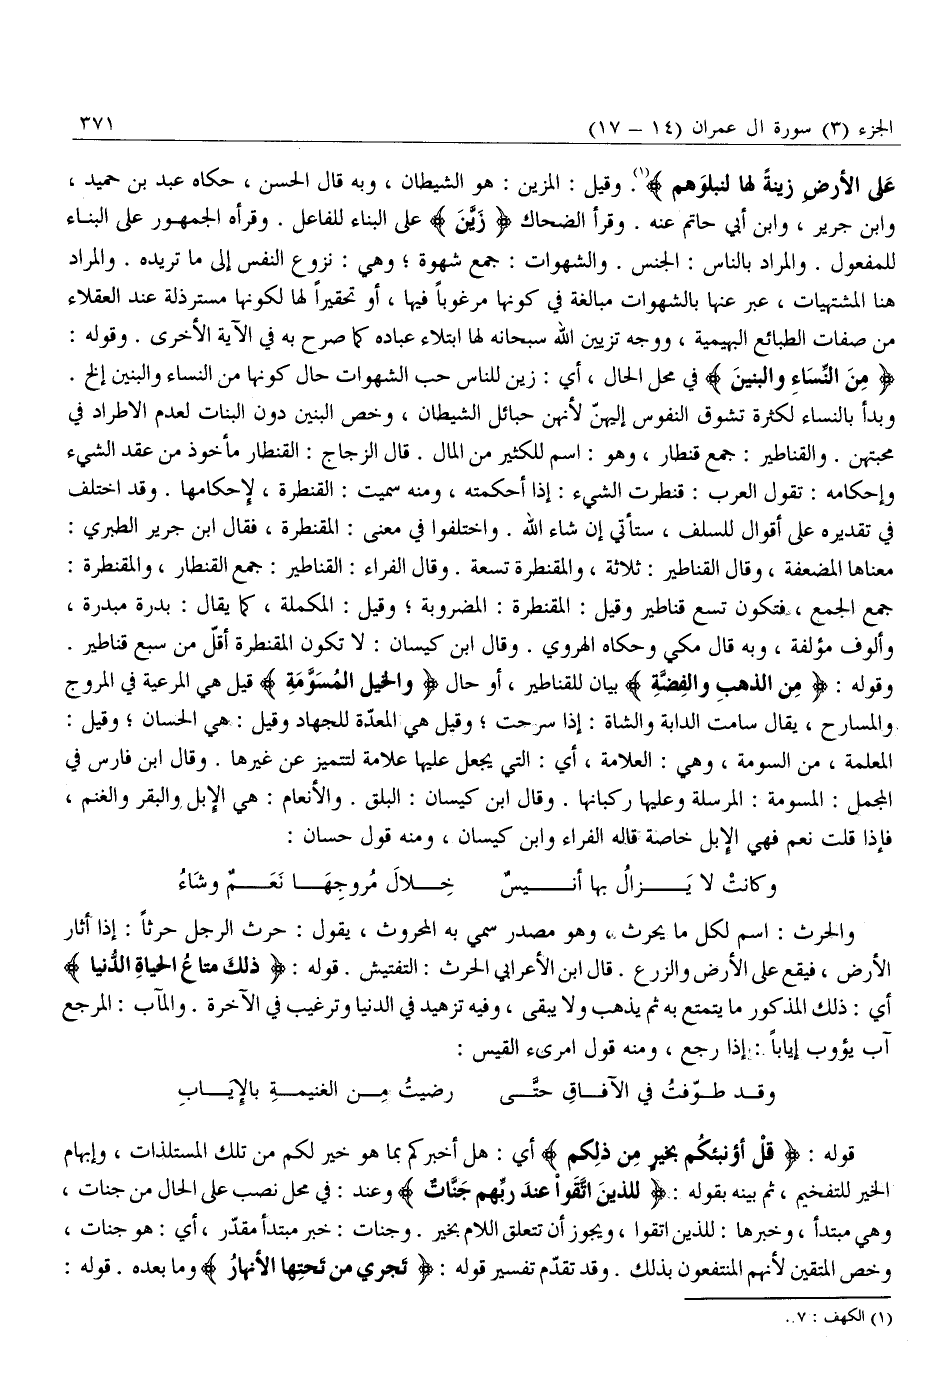 الجزء (٣) سورة ال عمران (١٤ – ١٧) ٣٧١
عَلى الأرضِ زينةً لها لنبلوَهم ﴾(١). وقيل : المزين : هو الشيطان ، وبه قال الحسن ، حكاه عبد بن حميد ،
وابن جرير ، وابن أبي حاتم عنه . وقرأ الضحاك ﴿ زَيَّنَ ﴾ على البناء للفاعل . وقرأه الجمهور على البناء
للمفعول . والمراد بالناس : الجنس . والشهوات : جمع شهوة ؛ وهي : نزوع النفس إلى ما تريده . والمراد
هنا المشتهيات ، عبر عنها بالشهوات مبالغة في كونها مرغوباً فيها ، أو تحقيراً لها لكونها مسترذلة عند العقلاء
من صفات الطبائع البهيمية ، ووجه تزيين الله سبحانه لها ابتلاء عباده كما صرح به في الآية الأخرى . وقوله :
﴿ مِنَ النِّسَاءِ والبنينَ ﴾ في محل الحال ، أي : زين للناس حب الشهوات حال كونها من النساء والبنين إلخ .
وبدأ بالنساء لكثرة تشوق النفوس إليهنّ لأنهن حبائل الشيطان ، وخص البنين دون البنات لعدم الاطراد في
محبتهن . والقناطير : جمع قنطار ، وهو : اسم للكثير من المال . قال الزجاج : القنطار مأخوذ من عقد الشيء
وإحكامه : تقول العرب : قنطرت الشيء : إذا أحكمته ، ومنه سميت : القنطرة ، لإحكامها . وقد اختلف
في تقديره على أقوال للسلف ، ستأتي إن شاء الله . واختلفوا في معنى : المقنطرة ، فقال ابن جرير الطبري :
معناها المضعفة ، وقال القناطير : ثلاثة ، والمقنطرة تسعة . وقال الفراء : القناطير : جمع القنطار ، والمقنطرة :
جمع الجمع ، فتكون تسع قناطير وقيل : المقنطرة : المضروبة ؛ وقيل : المكملة ، كما يقال : بدرة مبدرة ،
وألوف مؤلفة ، وبه قال مكي وحكاه الهروي . وقال ابن كيسان : لا تكون المقنطرة أقلّ من سبع قناطير .
وقوله : ﴿ مِن الذهبِ والفضَّةِ ﴾ بيان للقناطير ، أو حال ﴿ والخيلِ المُسَوَّمَةِ ﴾ قيل هي المرعية في المروج
والمسارح ، يقال سامت الدابة والشاة : إذا سرحت ؛ وقيل هي المعدّة للجهاد وقيل : هي الحسان ؛ وقيل :
المعلمة ، من السومة ، وهي : العلامة ، أي : التي يجعل عليها علامة لتتميز عن غيرها . وقال ابن فارس في
المجمل : المسومة : المرسلة وعليها ركبانها . وقال ابن كيسان : البلق . والأنعام : هي الإبل والبقر والغنم ،
فإذا قلت نعم فهي الإبل خاصة قاله الفراء وابن كيسان ، ومنه قول حسان :
وكانتْ لا يَـــزالُ بها أنـــيسٌ خِـــلالَ مُروجِهَـــا نَعَـــمٌ وشَاءُ
والحرث : اسم لكل ما يحرث ، وهو مصدر سمي به المحروث ، يقول : حرث الرجل حرثاً : إذا أثار
الأرض ، فيقع على الأرض والزرع . قال ابن الأعرابي الحرث : التفتيش . قوله : ﴿ ذلكَ متاعُ الحياةِ الدُّنيا ﴾
أي : ذلك المذكور ما يتمتع به ثم يذهب ولا يبقى ، وفيه تزهيد في الدنيا وترغيب في الآخرة . والمآب : المرجع
آب يؤوب إياباً : إذا رجع ، ومنه قول امرىء القيس :
وقـد طـوّفتُ في الآفـاقِ حتَّـى رضيتُ مِـن الغنيمـةِ بالإيَـابِ
قوله : ﴿ قلْ أؤنبئكُم بخيرٍ مِن ذلِكم ﴾ أي : هل أخبركم بما هو خير لكم من تلك المستلذات ، وإبهام
الخير للتفخيم ، ثم بينه بقوله : ﴿ للذينَ اتَّقواْ عندَ ربِّهم جَنَّاتٌ ﴾ وعند : في محل نصب على الحال من جنات ،
وهي مبتدأ ، وخبرها : للذين اتقوا ، ويجوز أن تتعلق اللام بخير . وجنات : خبر مبتدأ مقدّر ، أي : هو جنات ،
وخص المتقين لأنهم المنتفعون بذلك . وقد تقدّم تفسير قوله : ﴿ تَجري من تَحتِها الأنهارُ ﴾ وما بعده . قوله :
(١) الكهف : ٧ .